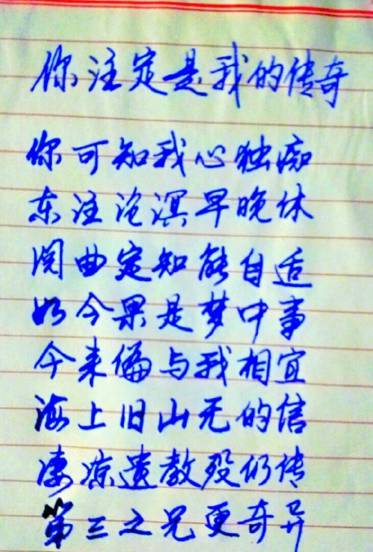 你注定是我的传奇
你可知我心独痴
东注沧溟早晚休
阅曲定知能自适
如今果是梦中事
今来偏与我相宜
海上旧山无的信
凄凉遗教殁仍传
第三之兄更奇异